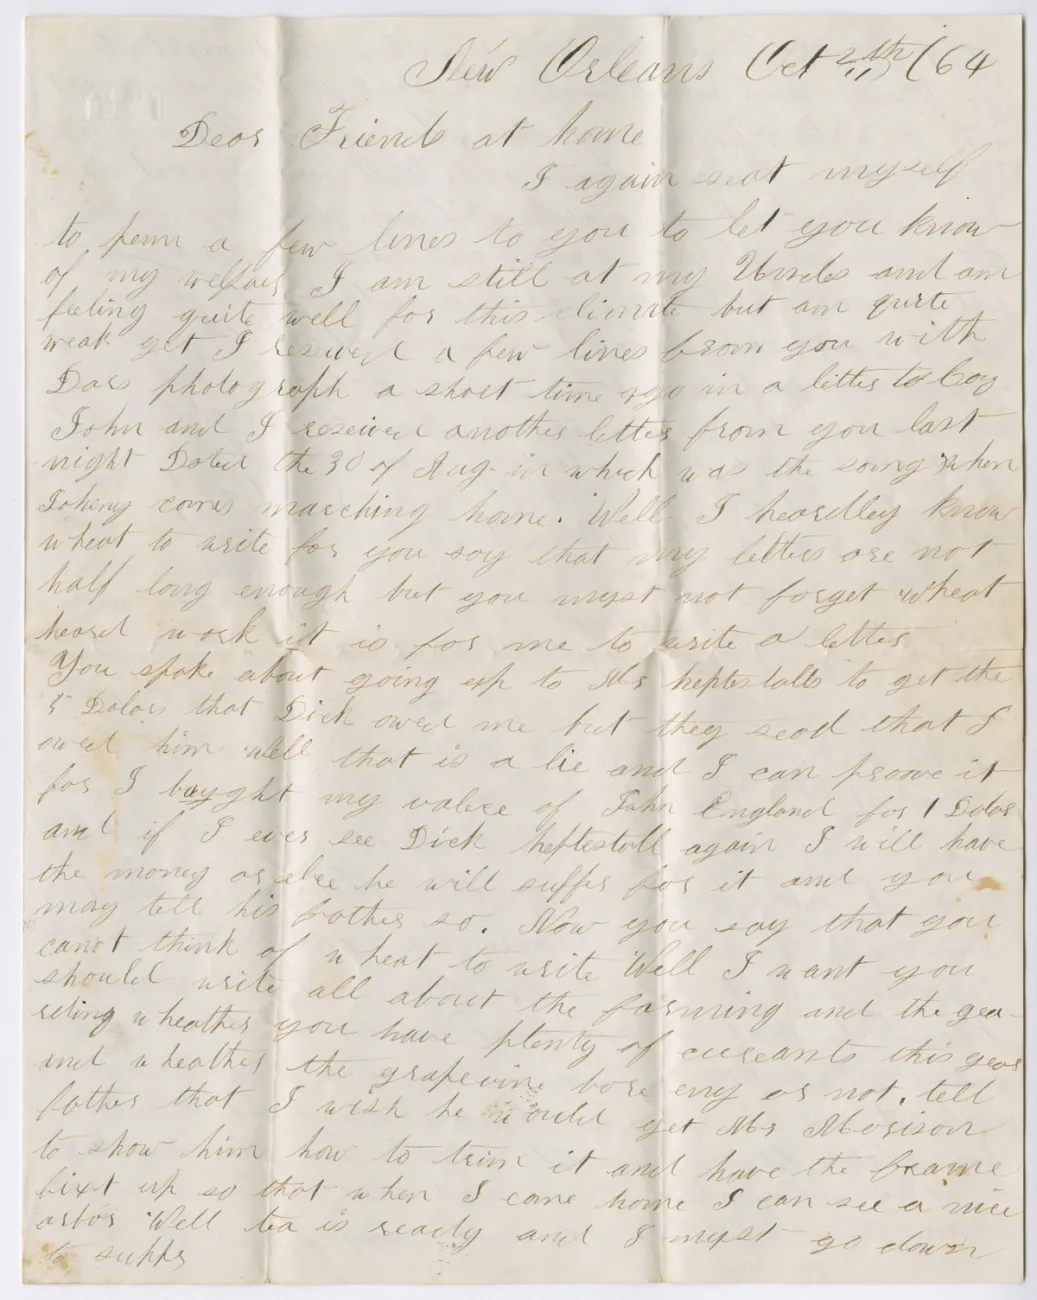 New Orleans Oct 2th /64
Dear Friends at home
I again seat myself
to penn a few lines to you to let you know
of my welfair I am still at my Uncls and am
feeling quite well for this climate but am quite
weak yet I reseived a few lines from you with
Dars photograph a short time ago in a letter to Coz
John and I reseived another letter from you last
night Dated the 30 of Aug in which was the soing when
Johny coms marching home. Well I heardley know
wheat to write for you say that my letters are not
half long enough but you myst not forget wheat
heard work it is for me to write a letter
You spoke about going up to Mr heptestalls to get the
5 Dolars that Dick owed me but they sead that I
owed him well that is a lie and I can proove it
for I bought my valece of John England for 1 Dolar
and if I ever see Dick heptestall again I will have
the money or elce he will suffer for it and you
may tell his father so. Now you say that you
canot think of wheat to write Well I want you
should write all about the farming and the gea-
rding wheather you have plenty of cureants this year
and wheather the grapevine bore eny or not. tell
father that I wish he would get Mr Morison
to show him how to trim it and have the frame
fixt up so that when I come home I can see a nice
arbor Well tea is ready and I myst go down
to supper